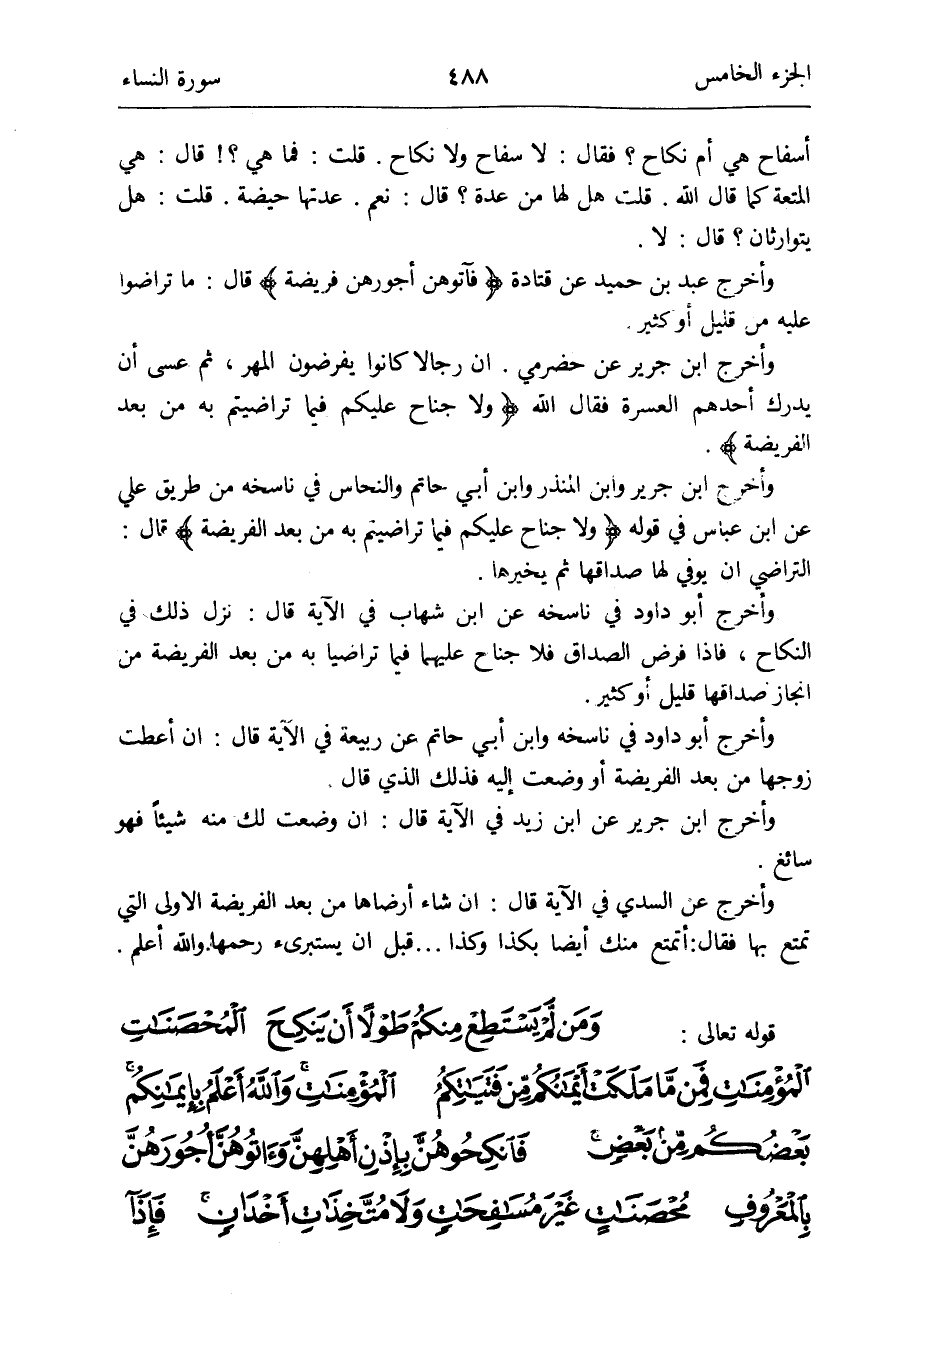 الجزء الخامس ٤٨٨ سورة النساء
أسفاح هي أم نكاح ؟ فقال : لا سفاح ولا نكاح . قلت : فما هي ؟! قال : هي
المتعة كما قال الله . قلت هل لها من عدة ؟ قال : نعم . عدتها حيضة . قلت : هل
يتوارثان ؟ قال : لا .
وأخرج عبد بن حميد عن قتادة ﴿ فآتوهن أجورهن فريضة ﴾ قال : ما تراضوا
عليه من قليل أو كثير .
وأخرج ابن جرير عن حضرمي . ان رجالا كانوا يفرضون المهر ، ثم عسى أن
يدرك أحدهم العسرة فقال الله ﴿ ولا جناح عليكم فيما تراضيتم به من بعد
الفريضة ﴾ .
وأخرج ابن جرير وابن المنذر وابن أبي حاتم والنحاس في ناسخه من طريق علي
عن ابن عباس في قوله ﴿ ولا جناح عليكم فيما تراضيتم به من بعد الفريضة ﴾ قال :
التراضي ان يوفي لها صداقها ثم يخيرها .
وأخرج أبو داود في ناسخه عن ابن شهاب في الآية قال : نزل ذلك في
النكاح ، فاذا فرض الصداق فلا جناح عليهما فيما تراضيا به من بعد الفريضة من
انجاز صداقها قليل أو كثير .
وأخرج أبو داود في ناسخه وابن أبي حاتم عن ربيعة في الآية قال : ان أعطت
زوجها من بعد الفريضة أو وضعت إليه فذلك الذي قال .
وأخرج ابن جرير عن ابن زيد في الآية قال : ان وضعت لك منه شيئاً فهو
سائغ .
وأخرج عن السدي في الآية قال : ان شاء أرضاها من بعد الفريضة الاولى التي
تمتع بها فقال:أتمتع منك أيضا بكذا وكذا ...قبل ان يستبرىء رحمها.والله أعلم .
قوله تعالى : وَمَن لَّمْ يَسْتَطِعْ مِنكُمْ طَوْلًا أَن يَنكِحَ ٱلْمُحْصَنَٰتِ
ٱلْمُؤْمِنَٰتِ فَمِن مَّا مَلَكَتْ أَيْمَٰنُكُم مِّن فَتَيَٰتِكُمُ ٱلْمُؤْمِنَٰتِ ۚ وَٱللَّهُ أَعْلَمُ بِإِيمَٰنِكُم ۚ
بَعْضُكُم مِّنۢ بَعْضٍ ۚ فَٱنكِحُوهُنَّ بِإِذْنِ أَهْلِهِنَّ وَءَاتُوهُنَّ أُجُورَهُنَّ
بِٱلْمَعْرُوفِ مُحْصَنَٰتٍ غَيْرَ مُسَٰفِحَٰتٍ وَلَا مُتَّخِذَٰتِ أَخْدَانٍ ۚ فَإِذَآ